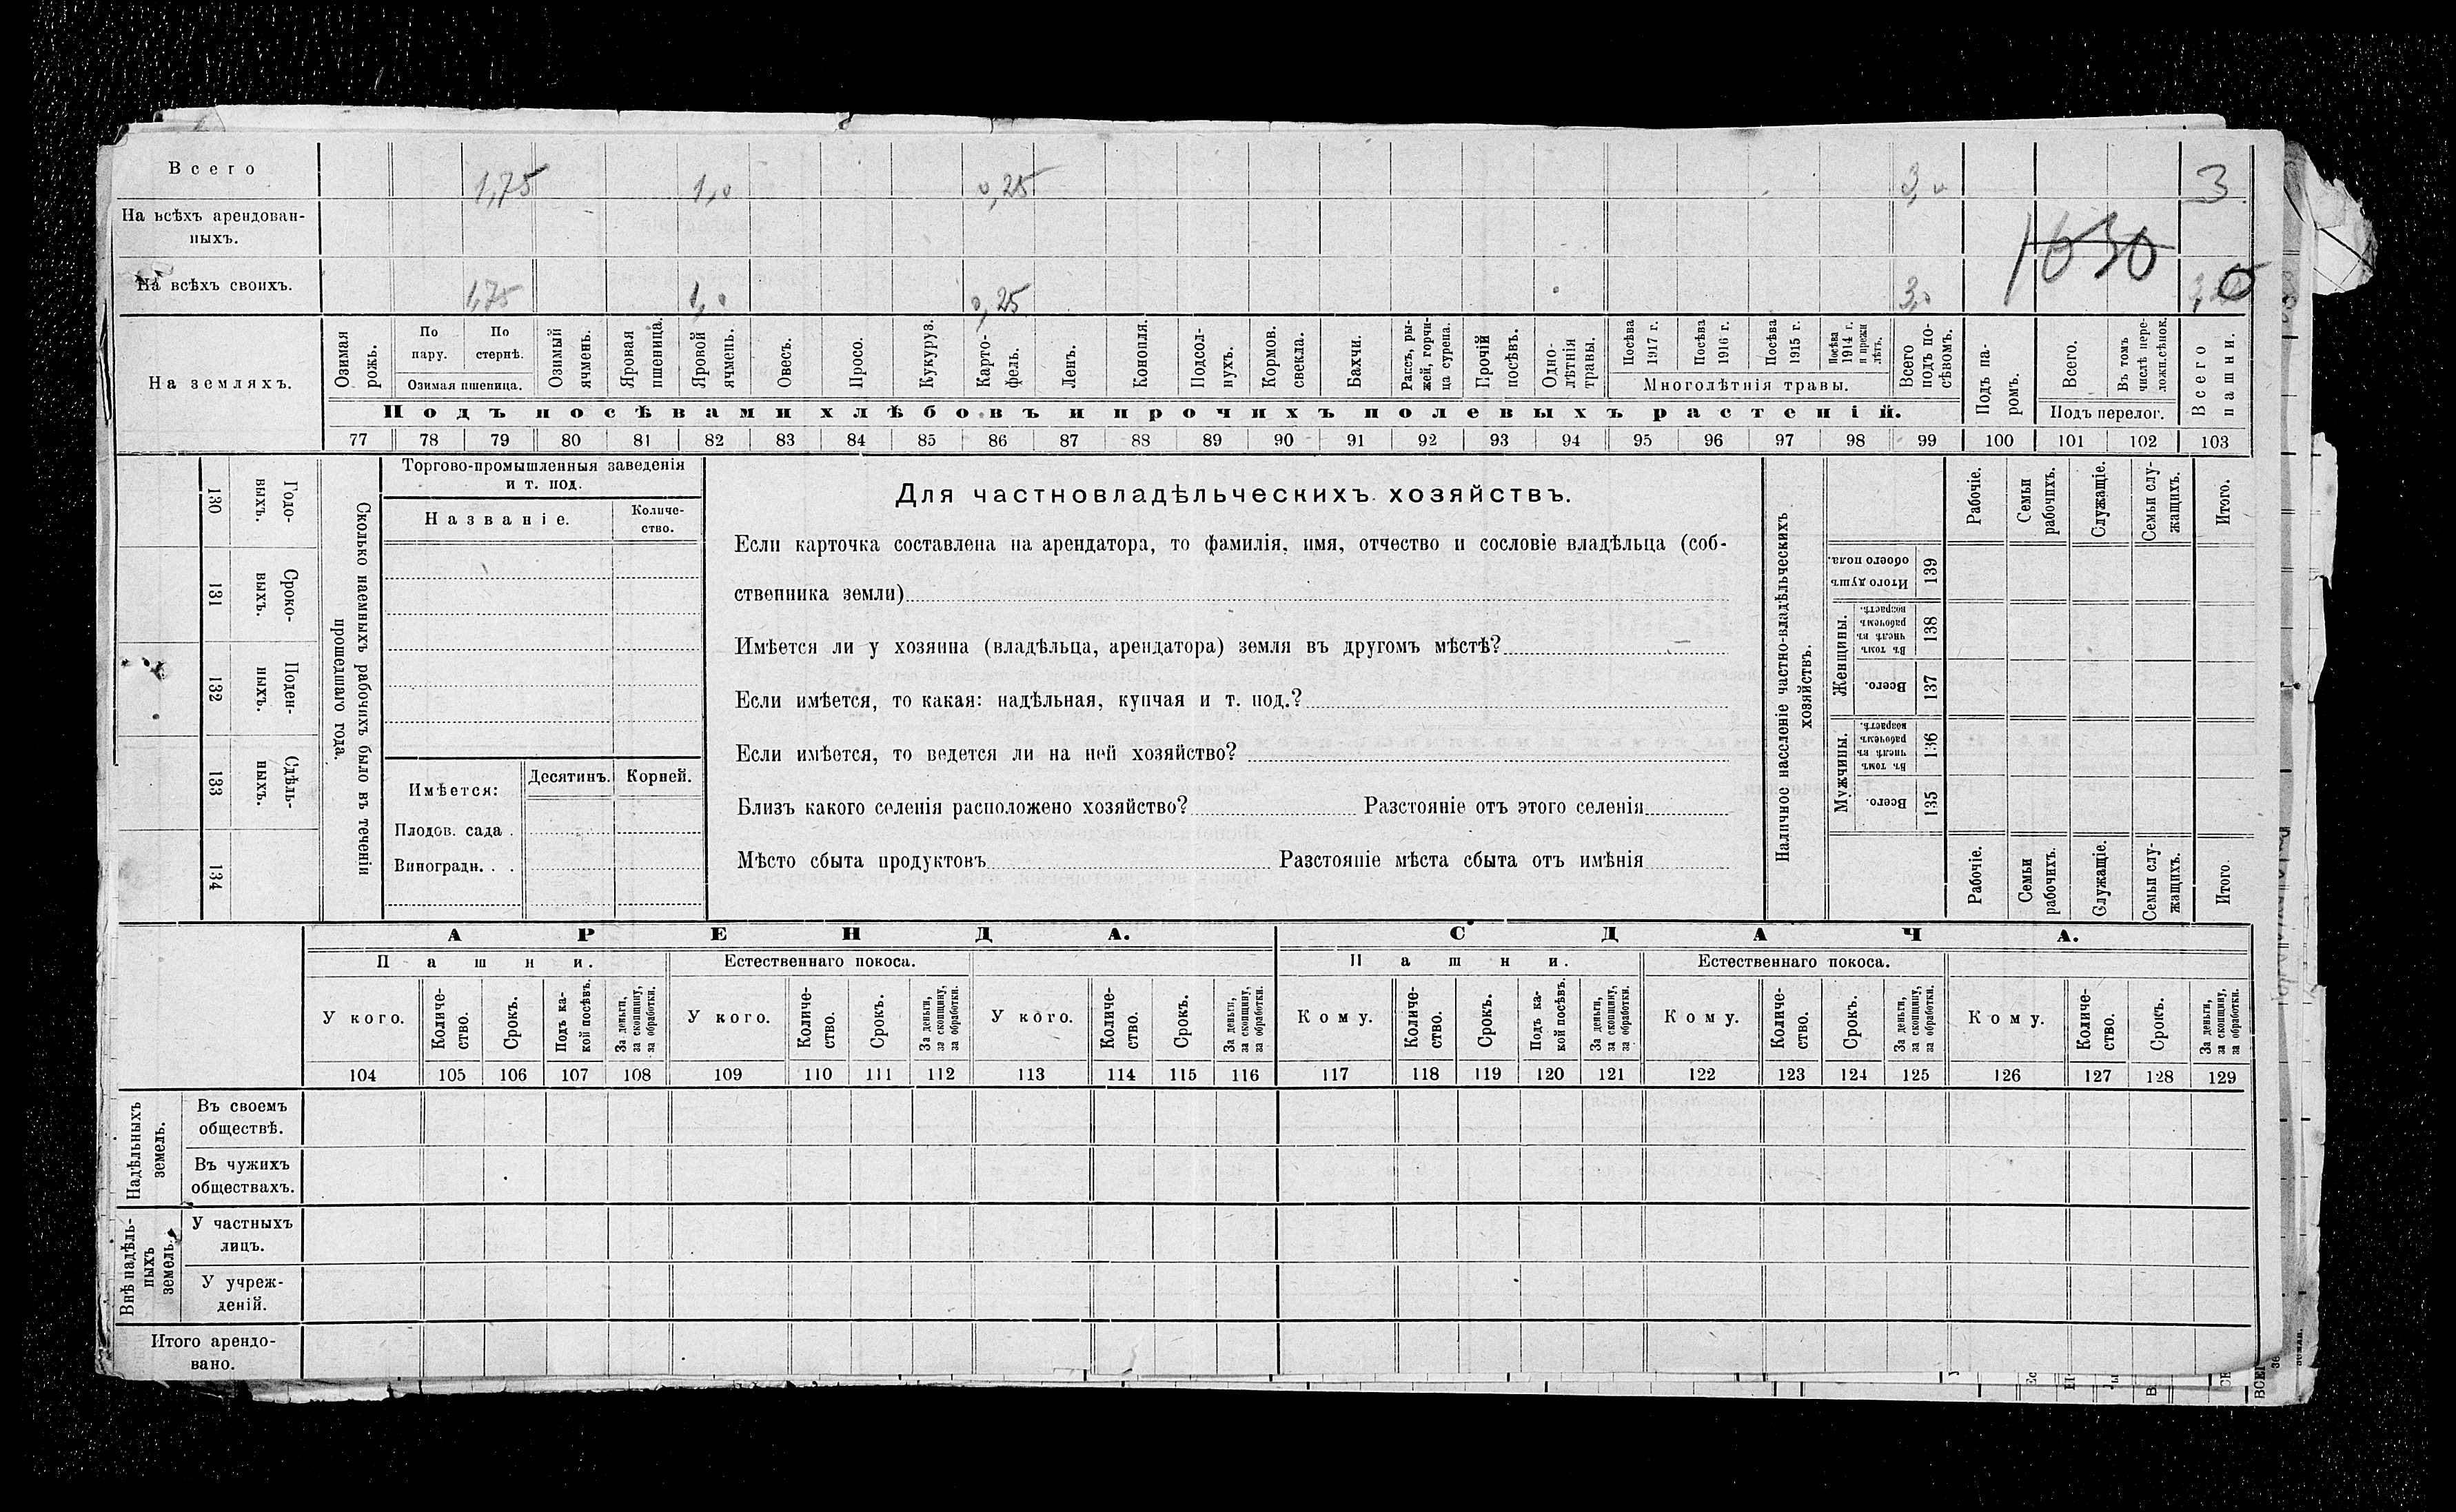 Всего 1,75 1,0 0,25 3,0 3
На всѣхъ арендован-
ныхъ.
1630
На всѣхъ своихъ. 1,75 1,0 0,25 3,0
На земляхъ.
Озимая рожь.
По пару.
По стернѣ.
Озимая пшеница.
Озимый ячмень.
Яровая пшеница.
Яровой ячмень.
Овесъ.
Просо.
Кукуруз.
Карто-
фель.
Ленъ.
Конопля.
Подсол-
нухъ.
Кормов. свекла.
Бахчи.
Рапсъ, ры-
жей, горчи-
ца сурепа.
Прочій посѣвъ.
Одно-
лѣтнія травы.
Посѣва 1917 г.
Посѣва 1916 г.
Посѣва 1915 г.
Посѣва 1914 г. и прежн лѣтъ.
Многолѣтнія травы.
Всего подъ по-
сѣвомъ.
Подъ па-
ромъ.
Всего.
Въ томъ числѣ пере-
ложн.сѣнок.
Подъ перелог.
Всего пашни.
Подъ посѣвами хлѣбовъ и прочихъ полевыхъ растеній.
77 78 79 80 81 82 83 84 85 86 87 88 89 90 91 92 93 94 95 96 97 98 99 100 101 102 103
130 Годо-
выхъ.
131 Сроко-
выхъ.
132 Поден-
ныхъ.
133 Сдѣль-
ныхъ.
134
Сколько наемныхъ рабочихъ было въ теченіи
прошедшаго года.
Торгово-промышленныя заведенія
и т. под.
Названіе.
Количе-
ство.
Имѣется:
Десятинъ. Корней.
Плодов. сада .
Виноградн. . .
Для частновладѣльческихъ хозяйствъ.
Если карточка составлена на арендатора, то фамилія, имя, отчество и сословіе владѣльца (соб-
ственника земли)
Имѣется ли у хозяина (владѣльца, арендатора) земля въ другомъ мѣстѣ? —
Если имѣется, то какая: надѣльная, купчая и т. под.?
Если имѣется, то ведется ли на ней хозяйство?
Близъ какого селенія расположено хозяйство? Разстояніе отъ этого селенія
Мѣсто сбыта продуктовъ Разстояніе мѣста сбыта отъ имѣнія
Наличное населеніе частно-владѣльческихъ
хозяйствъ.
Рабочіе.
Семьи рабочихъ.
Служащіе.
Семьи слу-
жащихъ.
Итого.
Итого душъ обоего пола. 139
Женщины.
Въ томъ числѣ въ рабочемъ возрастѣ. 138
Всего. 137
Мужчины.
Въ томъ числѣ въ рабочемъ возрастѣ. 136
Всего. 135
Рабочіе.
Семьи рабочихъ.
Служащіе.
Семьи слу-
жащихъ.
Итого.
АРЕНДА.
СДАЧА.
Пашни.
Естественнаго покоса.
Пашни.
Естественнаго покоса.
У кого.
Количе-
ство.
Срокъ.
Подъ ка-
кой посѣвъ.
За деньги, за скопщину, за обработки.
У кого.
Количе-
ство.
Срокъ.
За деньги, за скопщину, за обработки.
У кого.
Количе-
ство.
Срокъ.
За деньги, за скопщину, за обработки.
Кому.
Количе-
ство.
Срокъ.
Подъ ка-
кой посѣвъ.
За деньги, за скопщину, за обработки.
Кому.
Количе-
ство.
Срокъ.
За деньги, за скопщину, за обработки.
Кому.
Количе-
ство.
Срокъ.
За деньги, за скопщину, за обработки.
104 105 106 107 108 109 110 111 112 113 114 115 116 117 118 119 120 121 122 123 124 125 126 127 128 129
Надѣльныхъ
земель.
Въ своемъ
обществѣ.
Въ чужихъ
обществахъ.
Внѣ надѣль-
ныхъ
земель.
У частныхъ
лицъ.
У учреж-
деній.
Итого арендо-
вано.